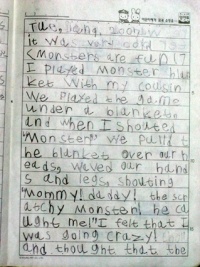 it was very cold
<Monsters are fun!>
I played Monster blan
ket with my cousin
We played the game
under a blanket.
and when I shouted
"Monster!" we pulled t
he blanket over our h
eads, waved our hand
s and legs, shouting
"Mommy! daddy! the scr
atchy monster! he ca
ught me!" I felt that I
was going crazy!
and thought that the